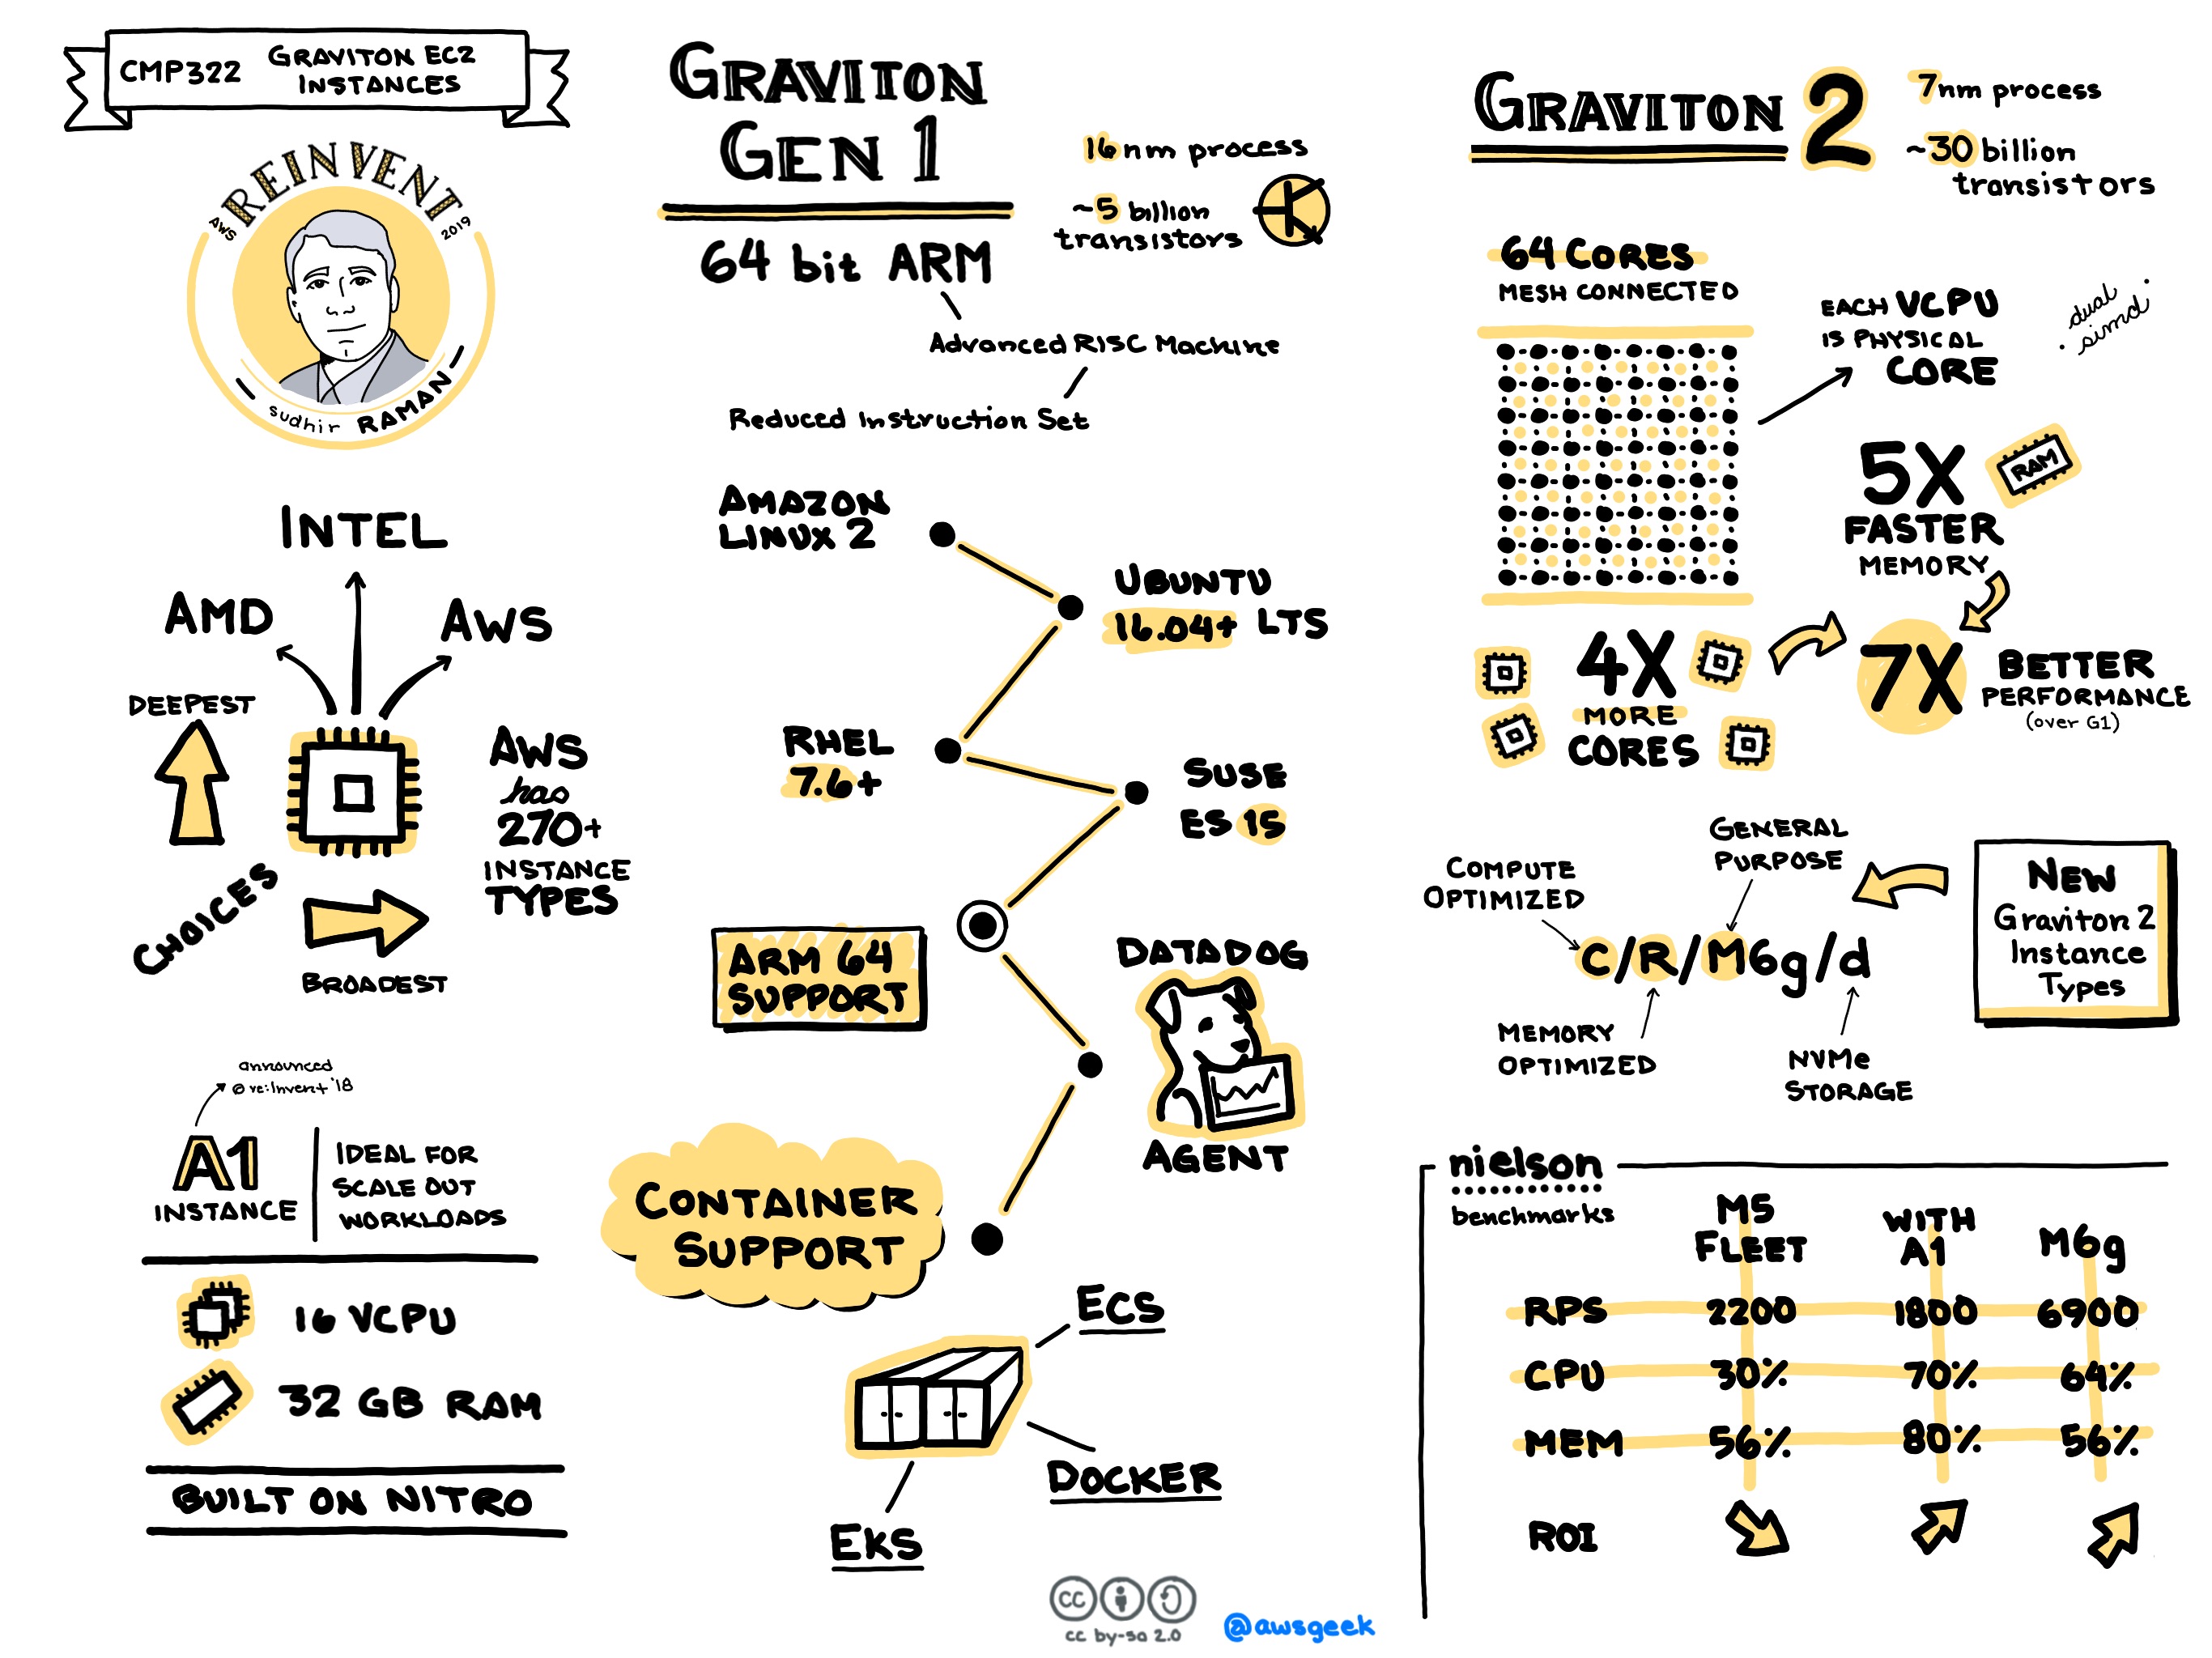 CMP322
GRAVITON EC2
INSTANCES
AWS REINVENT 2019
sudhir RAMAN
INTEL
AMD
AWS
DEEPEST
CHOICES
BROADEST
AWS
has
270+
INSTANCE
TYPES
announced
@ re:Invent '18
A1
INSTANCE
IDEAL FOR
SCALE OUT
WORKLOADS
16 VCPU
32 GB RAM
BUILT ON NITRO
GRAVITON
GEN 1
16nm process
~5 billion
transistors
64 bit ARM
Advanced RISC Machine
Reduced Instruction Set
AMAZON
LINUX 2
UBUNTU
16.04+ LTS
RHEL
7.6+
SUSE
ES 15
ARM 64
SUPPORT
DATADOG
AGENT
CONTAINER
SUPPORT
ECS
DOCKER
EKS
cc
cc by-sa 2.0
@awsgeek
GRAVITON 2
7nm process
~30 billion
transistors
64 CORES
MESH CONNECTED
EACH VCPU
IS PHYSICAL
CORE
dual
simd
5X
FASTER
MEMORY
RAM
4X
MORE
CORES
7X
BETTER
PERFORMANCE
(over G1)
GENERAL
PURPOSE
COMPUTE
OPTIMIZED
C/R/M6g/d
MEMORY
OPTIMIZED
NVMe
STORAGE
NEW
Graviton 2
Instance
Types
nielson
benchmarks
M5
FLEET
WITH
A1
M6g
RPS 2200 1800 6900
CPU 30% 70% 64%
MEM 56% 80% 56%
ROI